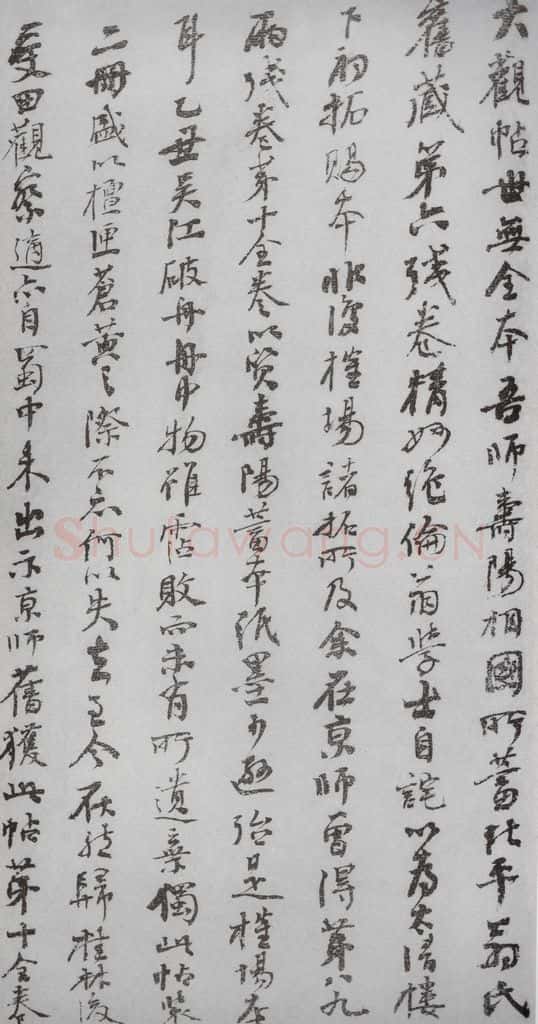 大觀帖世無全本吾師壽陽相國所蓄北平翁氏
舊藏第六殘卷精妙絶倫翁學士自詫以為太清樓
下初拓賜本非復榷場諸拓所及余在京師曾得第八九
兩殘卷第十全卷以質壽陽蓄本紙墨少遜殆是榷場本
耳乙丑吳江破舟舟中物雖霑敗而未有所遺棄獨此帖裝
二冊盛以檀匣蒼黃之際不知何以失去至今歸桂林後
田觀察適自蜀中來出示京師舊獲此帖第十全卷
Shufawang.CN